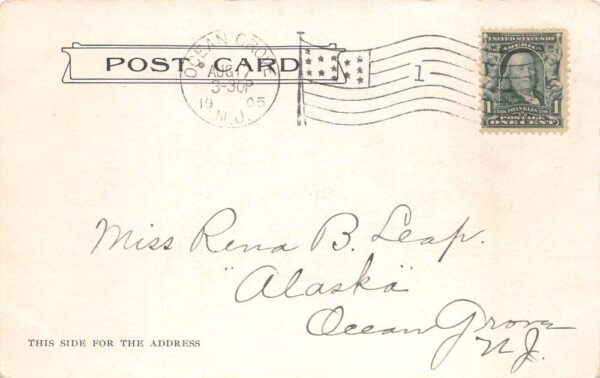 POST CARD
OCEAN GROVE
AUG 17
3-30P
19 05
N.J.
1
UNITED STATES OF
AMERICA
FRANKLIN
1 1
POSTAGE
ONE CENT
Miss Rena B. Leap.
"Alaska"
Ocean Grove
N.J.
THIS SIDE FOR THE ADDRESS